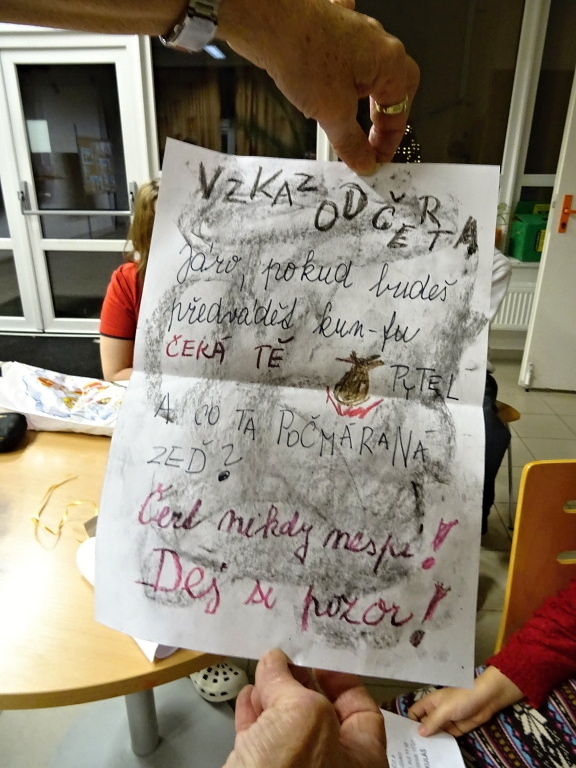 VZKAZ OD ČERTA
Járo, pokud budeš
předvádět kun-fu
ČEKÁ TĚ PYTEL
A CO TA POČMÁRANÁ
ZEĎ?
Čert nikdy nespí!
Dej si pozor!